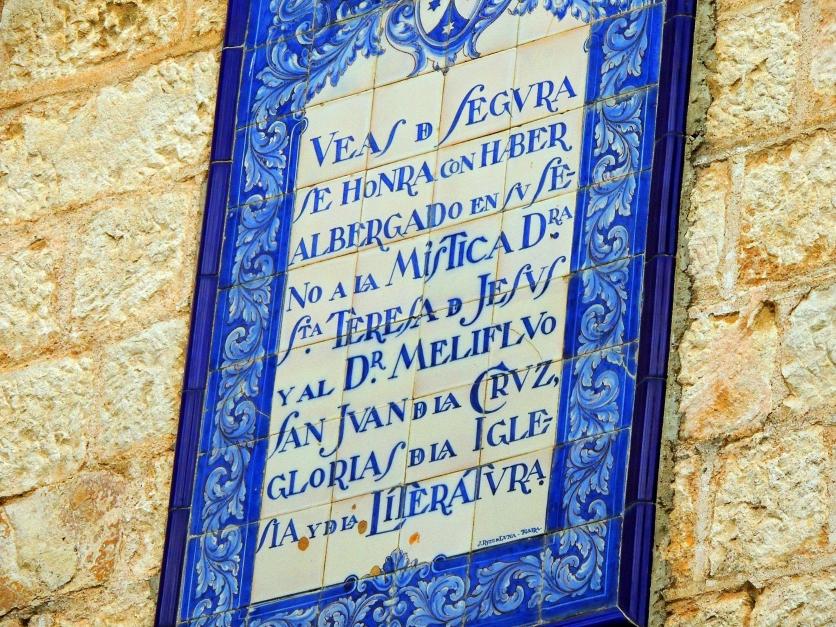 VEAS D SEGVRA
SE HONRA CON HABER
ALBERGADO EN SV SE-
NO A LA MISTICA DRA.
STA. TERESA D JESVS
Y AL DR. MELIFLVO
SAN JVAN D LA CRVZ,
GLORIAS D LA IGLE-
SIA Y D LA LITERATVRA.